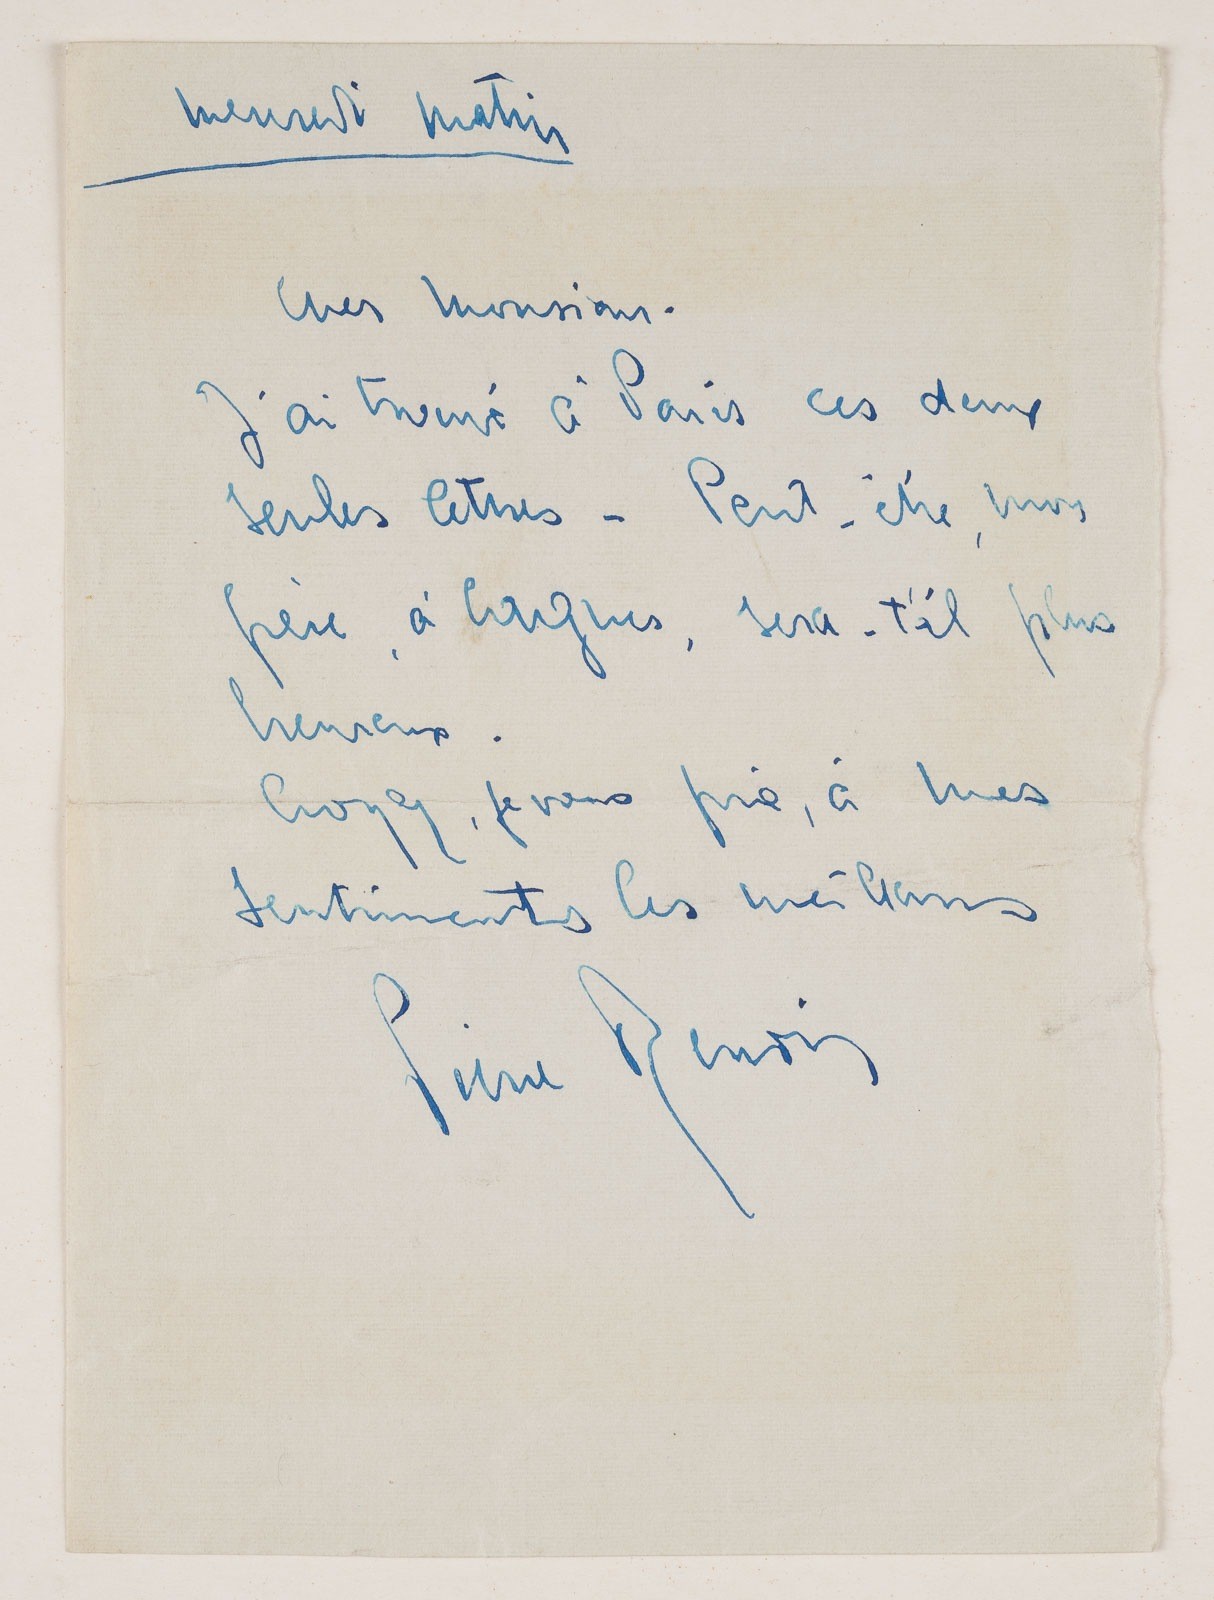 mercredi matin
Cher Monsieur.
J'ai trouvé à Paris ces deux
seules lettres - Peut-être, mon
père, à Cagnes, sera-t'il plus
heureux.
Croyez, je vous prie, à mes
sentiments les meilleurs
Pierre Renoir